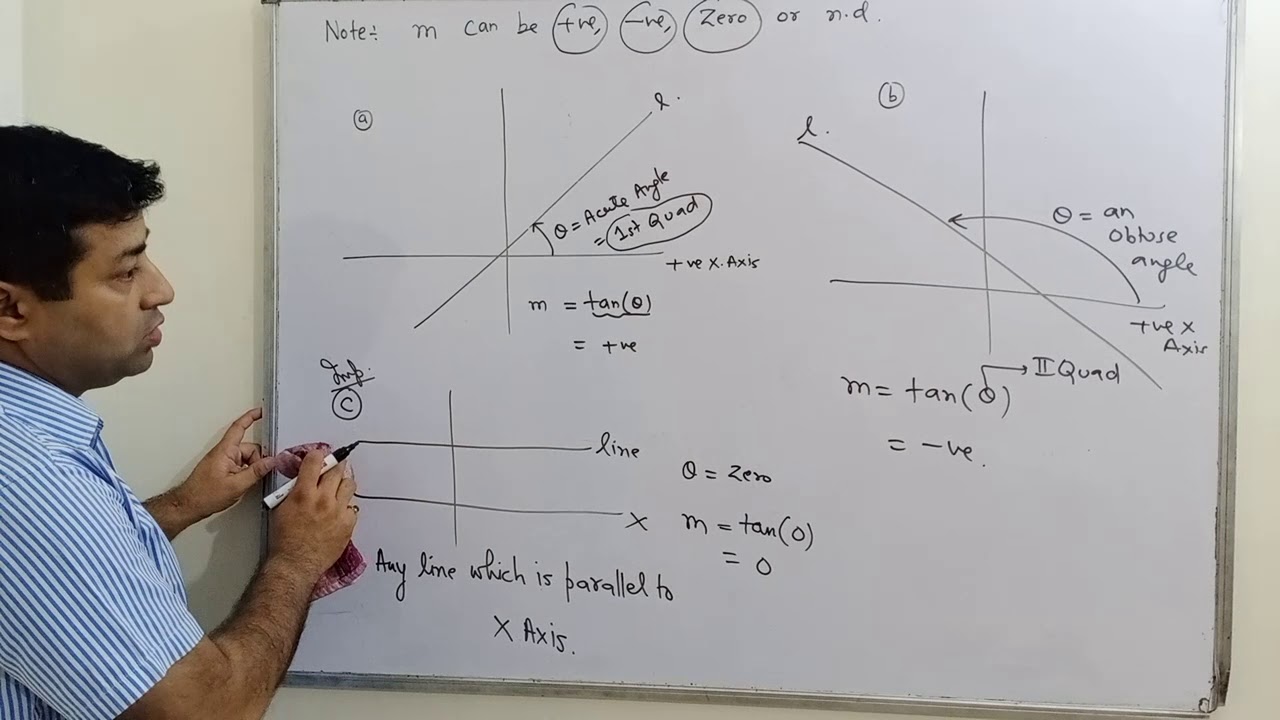 Note:- m can be +ve, -ve, Zero or n.d.
a
l.
θ = Acute Angle
= 1st Quad
+ve X.Axis
m = tan(θ)
= +ve
b
l.
θ = an
obtuse
angle
+ve X
Axis
II Quad
m = tan(θ)
= -ve.
Imp.
C
line
X
θ = Zero
m = tan(0)
= 0
Any line which is parallel to
X Axis.